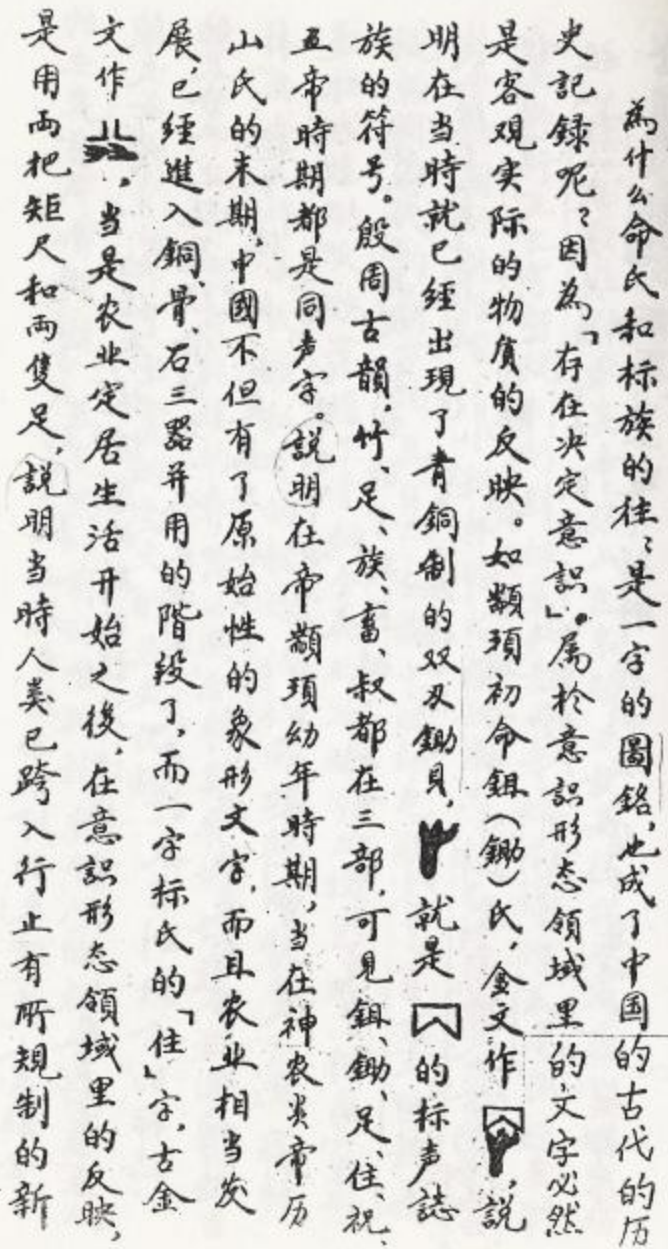 為什么命氏和标族的往〻是一字的圖銘，也成了中国的古代的历
史記録呢？因為「存在决定意識」。属於意識形态領域里的文字必然
是客观实际的物質的反映。如顓頊初命鉏（鋤）氏，金文作，説
明在当時就已經出現了青銅制的双刃鋤具，就是的标声誌
族的符号。殷周古韻，竹、足、族、畜、叔都在三部，可見鉏、鋤、足、住、祝、
五帝時期都是同声字。説明在帝顓頊幼年時期，当在神农炎帝历
山氏的末期，中國不但有了原始性的象形文字，而且农业相当发
展，已經進入銅、骨、石三器并用的階段了，而一字标氏的「住」字，古金
文作，当是农业定居生活开始之後，在意識形态領域里的反映，
是用両把矩尺和両隻足，説明当時人类已跨入行止有所規制的新